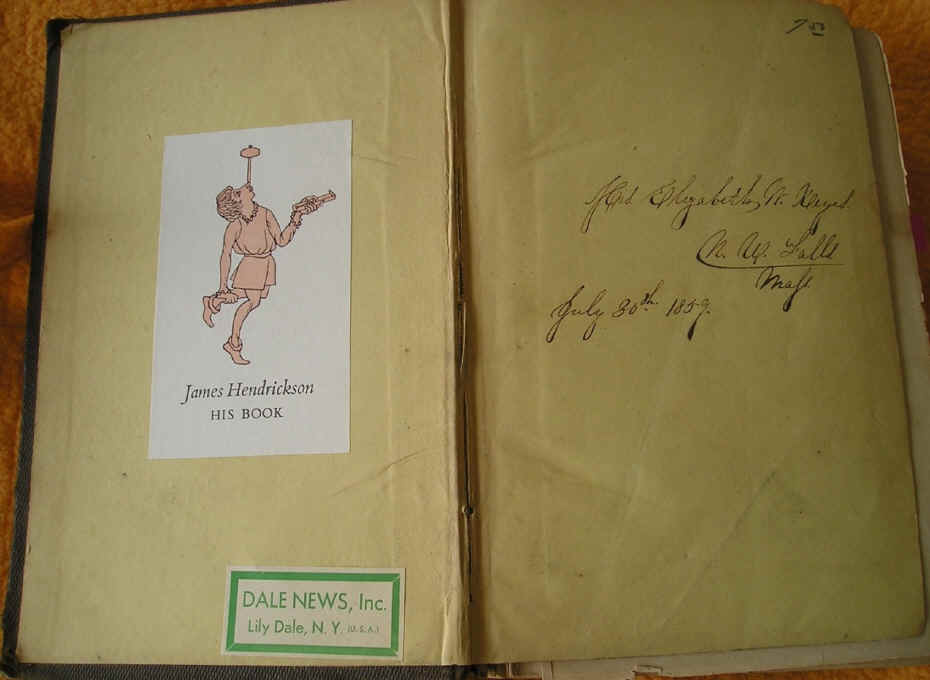 James Hendrickson
HIS BOOK
DALE NEWS, Inc.
Lily Dale, N. Y. (U.S.A.)
7.50
Elizabeth Keyes.
N. U. Falls
Mass
July 30th 1859.